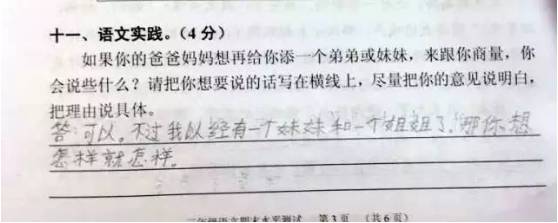 十一、语文实践。(4分)
如果你的爸爸妈妈想再给你添一个弟弟或妹妹，来跟你商量，你
会说些什么？请把你想要说的话写在横线上，尽量把你的意见说明白，
把理由说具体。
答：可以。不过我以经有一个妹妹和一个姐姐了。那你想
怎样就怎样。
二年级语文期末水平测试 第3页 (共6页)